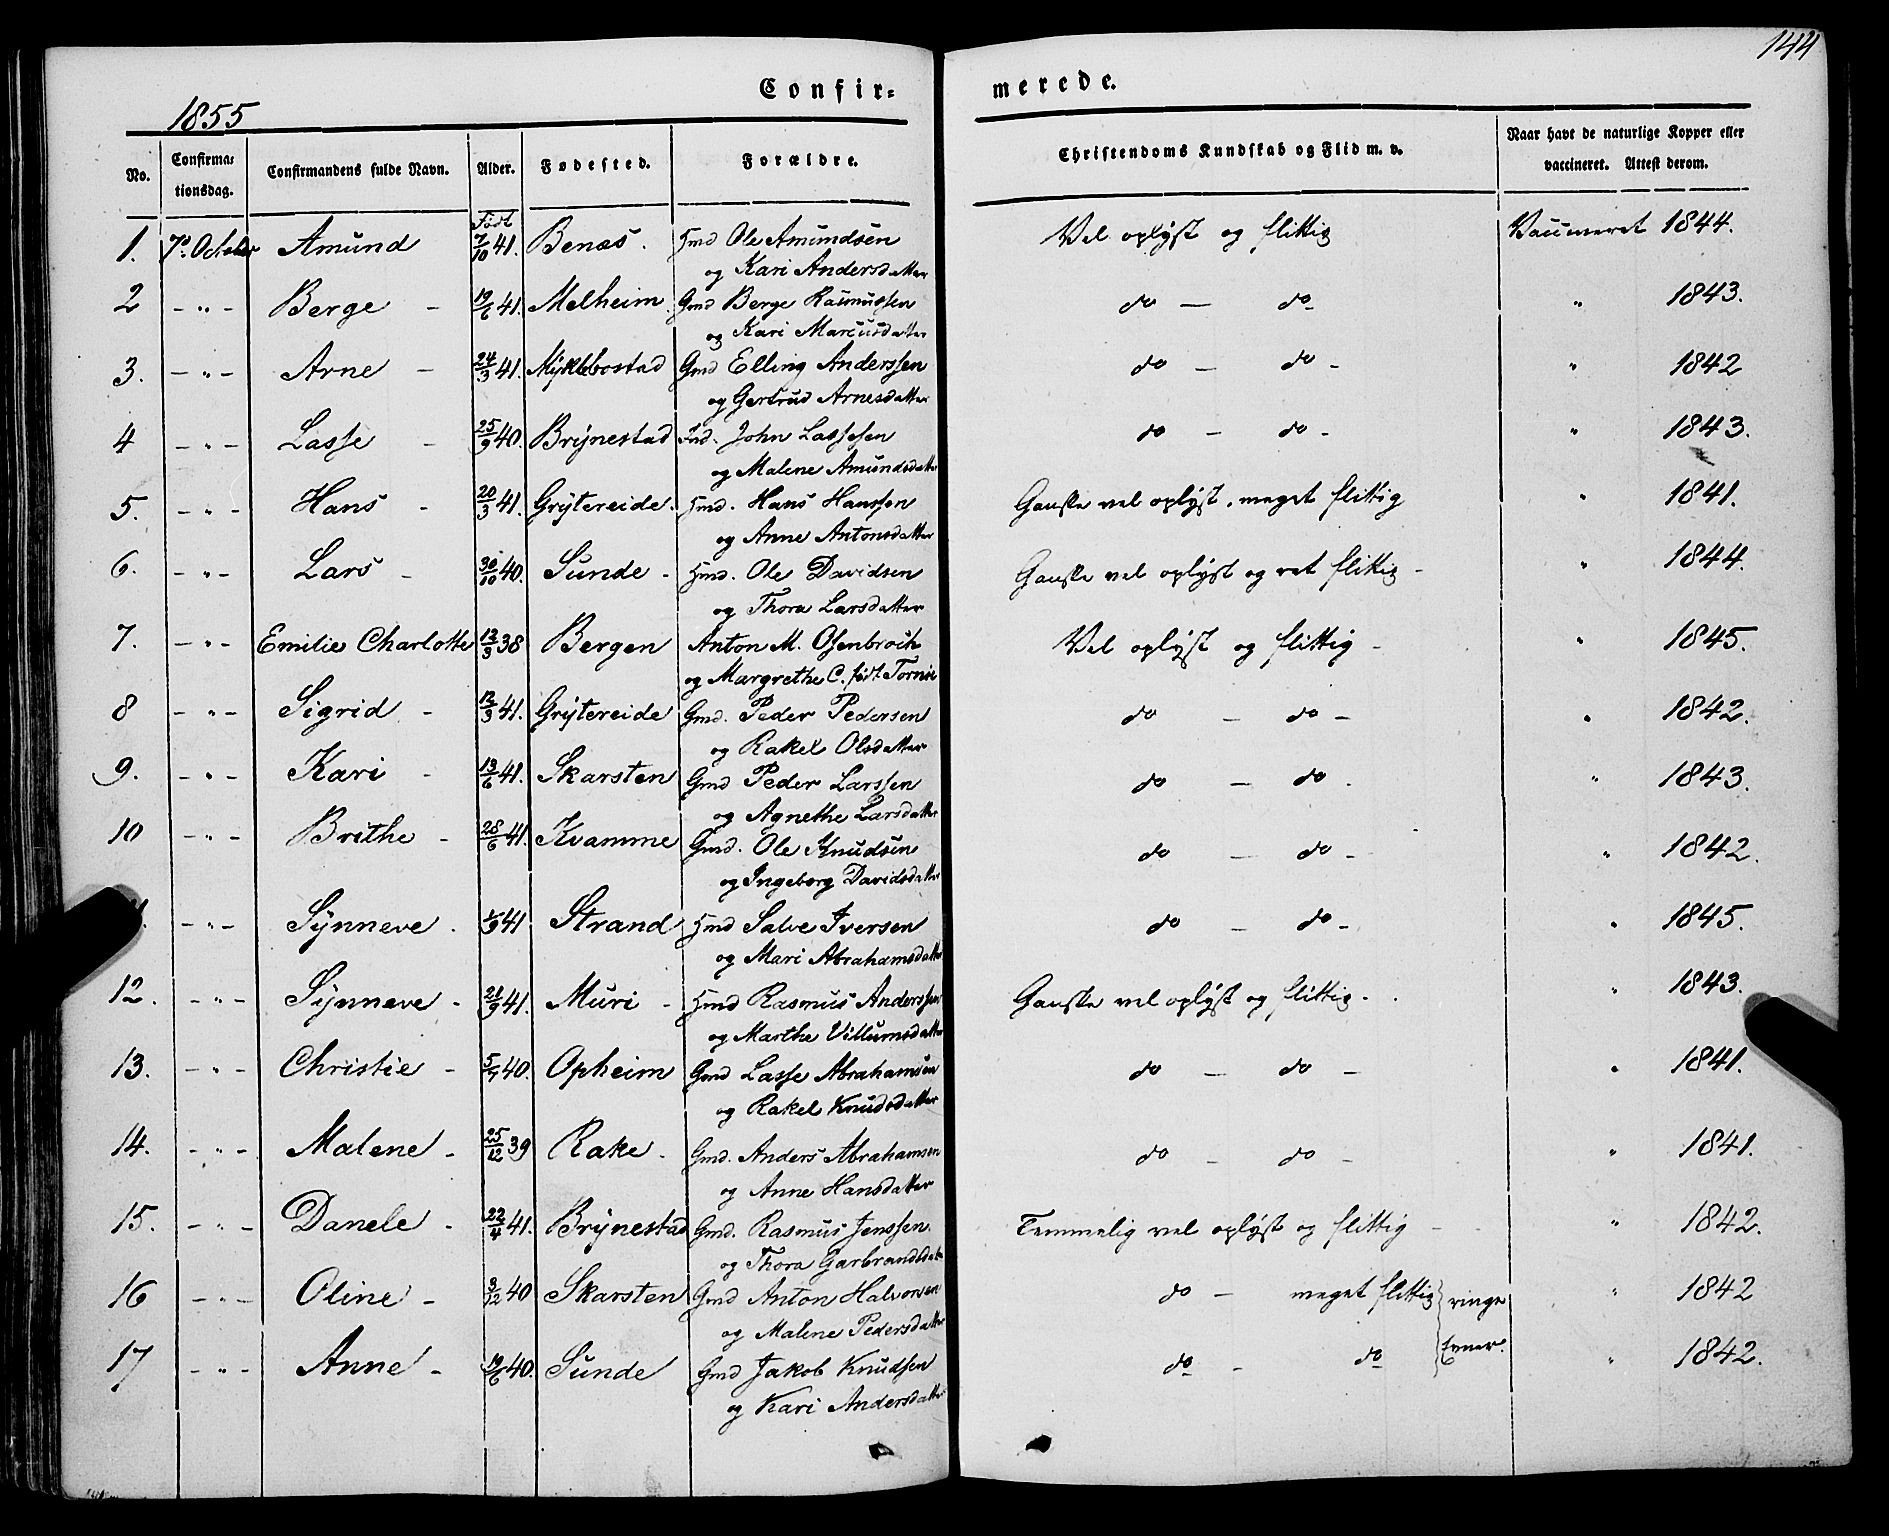 144
1855
Confir= merede.
No. Confirma= tionsdag. Confirmandens fulde Navn. Alder. Fødested. Forældre. Christendoms Kundskab og Flid m. v. Naar havt de naturlige Kopper eller vaccineret. Attest derom.
Født
1. 7de October Amund 7/10 41. Benæs. Hmd Ole Amundsen Vel oplyst og flittig Vaccineret 1844.
og Kari Andersdatter
2 - " - Berge - 19/6 41. Melheim. Gmd Berge Rasmussen do - do " 1843.
og Kari Marcusdatter
3. - " - Arne - 24/3 41. Myklebostad Gmd Elling Anderssen do - do - " 1842
og Gertrud Arnesdatter
4 - " - Lasse - 25/9 40. Brynestad Ind. John Lassesen do - do - " 1843.
og Malene Amundsdatter
5. - " - Hans - 20/3 41. Grytereide. Hmd. Hans Hanssen Ganske vel oplyst, meget flittig " 1841.
og Anne Antonsdatter
6. - " - Lars - 30/10 40. Sunde - Hmd. Ole Davidsen Ganske vel oplyst og ret flittig - " 1844.
og Thora Larsdatter
7. - " - Emilie Charlotte 12/3 38 Bergen Anton M. Osenbroch Vel oplyst og flittig - " 1845.
og Margrethe C. født Tornøe
8 - " - Sigrid - 12/3 41. Grytereide Gmd. Peder Pedersen do - do - " 1842.
og Rakel Olsdatter
9. - " - Kari - 13/6 41. Skarsten Gmd Peder Larssen do - do. " 1843.
og Agnethe Larsdatter
10 - " - Brithe - 28/6 41. Kvamme Gmd. Ole Knudsen do - do - " 1842.
og Ingeborg Davidsdatter
- " - Synneve. 41 Strand Hmd Salve Iversen do - do - " 1845.
og Mari Abrahamsdatter
12. - " - Synneve - 21/9 41. Muri - Hmd Rasmus Anderssen Ganske vel oplyst og flittig - " 1843.
og Marthe Villumsdatter
13. - " - Christie - 5/7 40. Opheim Gmd Lasse Abrahamsen do - do - " 1841.
og Rakel Knudsdatter
14. - " - Malene - 25/12 39 Rake - Gmd. Anders Abrahamsen do - do - " 1841.
og Anne Hansdatter
15. - " - Danele - 22/4 41. Brynestad Gmd. Rasmus Jenssen Temmelig vel oplyst og flittig - " 1842.
og Thora Garbrandsdatter
16 - " - Oline - 3/12 40 Skarsten Gmd Anton Halvorsen do - meget flittig ringe " 1842
og Malene Pedersdatter
17 - " - Anne - 19/6 40. Sunde Gmd Jakob Knudsen do - do Evner. " 1842.
og Kari Andersdatter